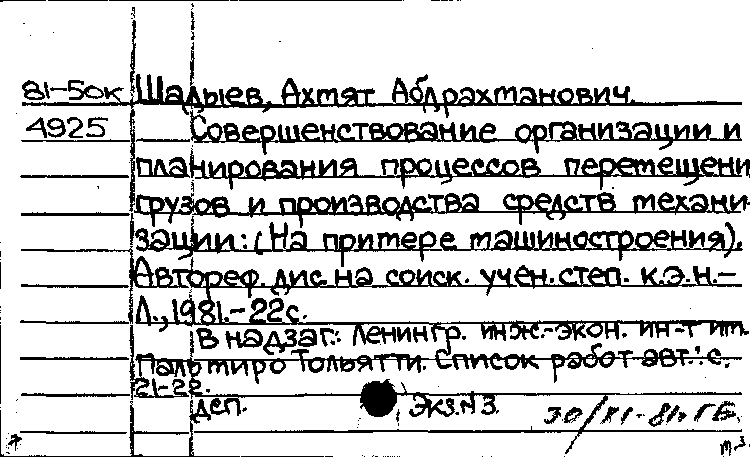 81-50к Шадыев, Ахмят Абдрахманович.
4925 Совершенствование организации и
планирования процессов перемещени
грузов и производства средств механи-
зации: (На примере машиностроения).
Автореф. дис. на соиск. учен. степ. к.э.н.-
Л., 1981.-22с.
В надзаг.: Ленингр. инж.-экон. ин-т им.
Пальмиро Тольятти. Список работ авт.: с.
21-22.
деп. Экз.N3. 30/XI-81г. ГБ.